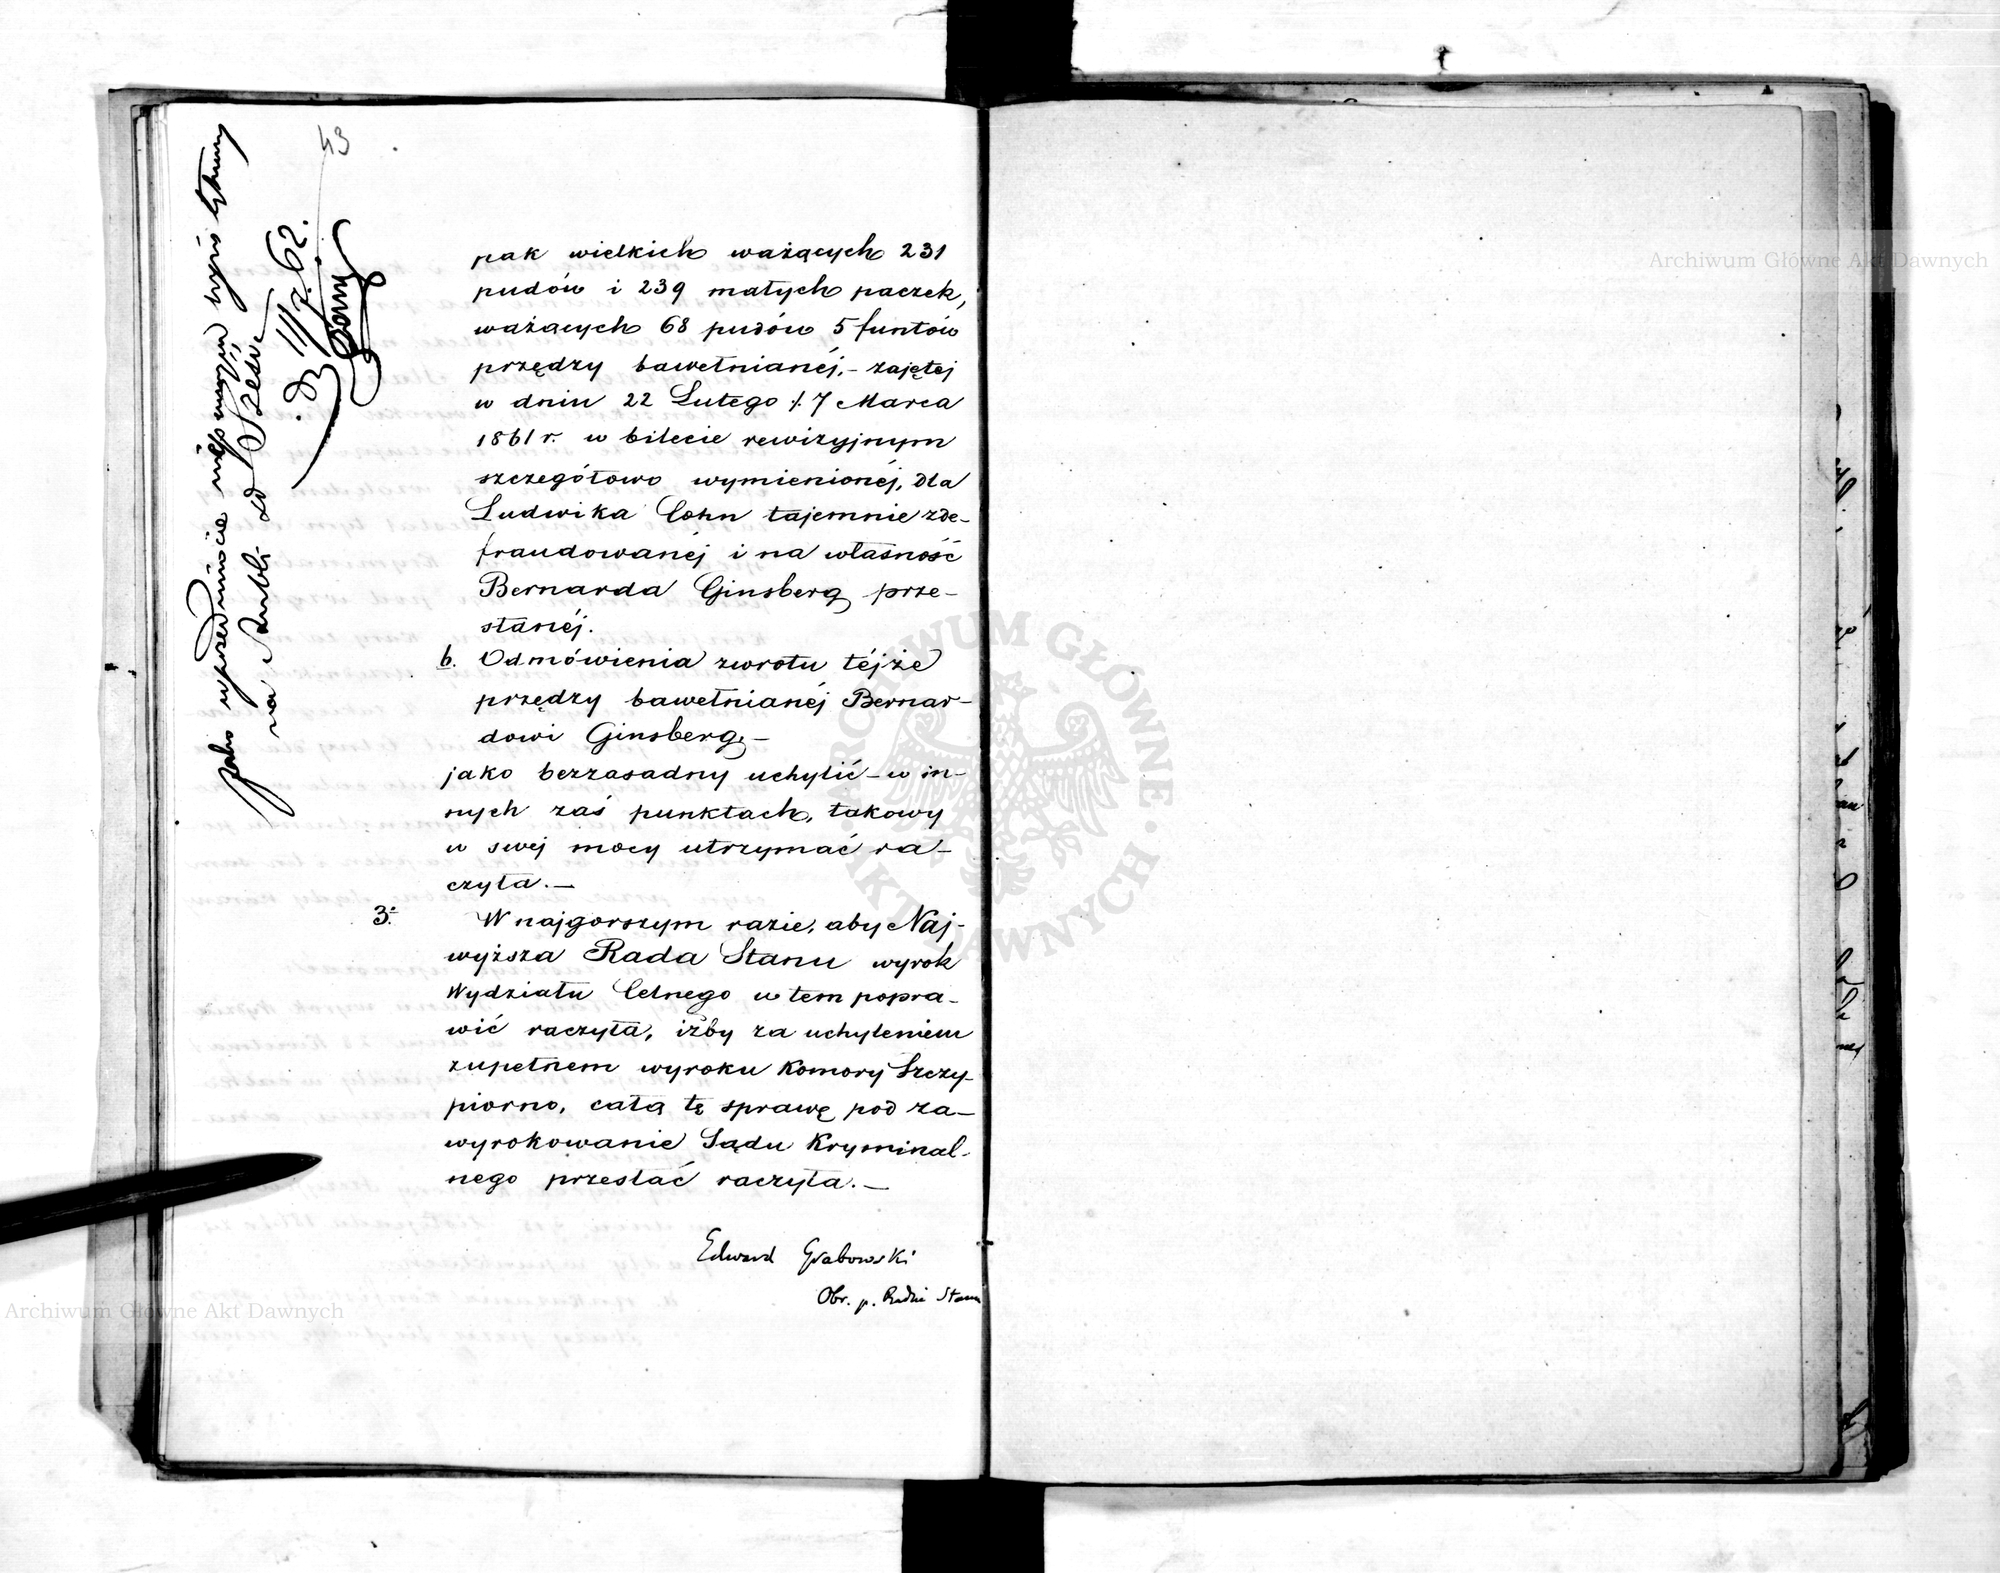 43
pak wielkich ważących 231
pudów i 239 małych paczek,
ważących 68 pudów 5 funtów
przędzy bawełnianéj,- zajętej
w dniu 22 Lutego /. 7 Marca
1861 r. w bilecie rewizyjnym
szczegółowo wymienionéj, dla
Ludwika Cohn tajemnie zde-
fraudowanéj i na własność
Bernarda Ginsberg prze-
słanéj.
b. Odmówienia zwrotu téjże
przędzy bawełnianéj Bernar-
dowi Ginsberg,-
jako bezzasadny uchylić - w in-
nych zaś punktach, takowy
w swej mocy utrzymać ra-
czyła.-
3. W najgorszym razie, aby Naj-
wyższa Rada Stanu wyrok
Wydziału Celnego w tem popra-
wić raczyła, iżby za uchyleniem
zupełnem wyroku Komory Szczy-
piorno, całą tę sprawę pod za-
wyrokowanie Sądu Kryminal-
nego przesłać raczyła.-
Edward Grabowski
Obr. p. Radzie Stanu
Jako w przedmiocie
na Rubli
11/7. 62.
Archiwum Główne Akt Dawnych
Archiwum Główne Akt Dawnych
ARCHIWUM GŁÓWNE · AKT DAWNYCH ·